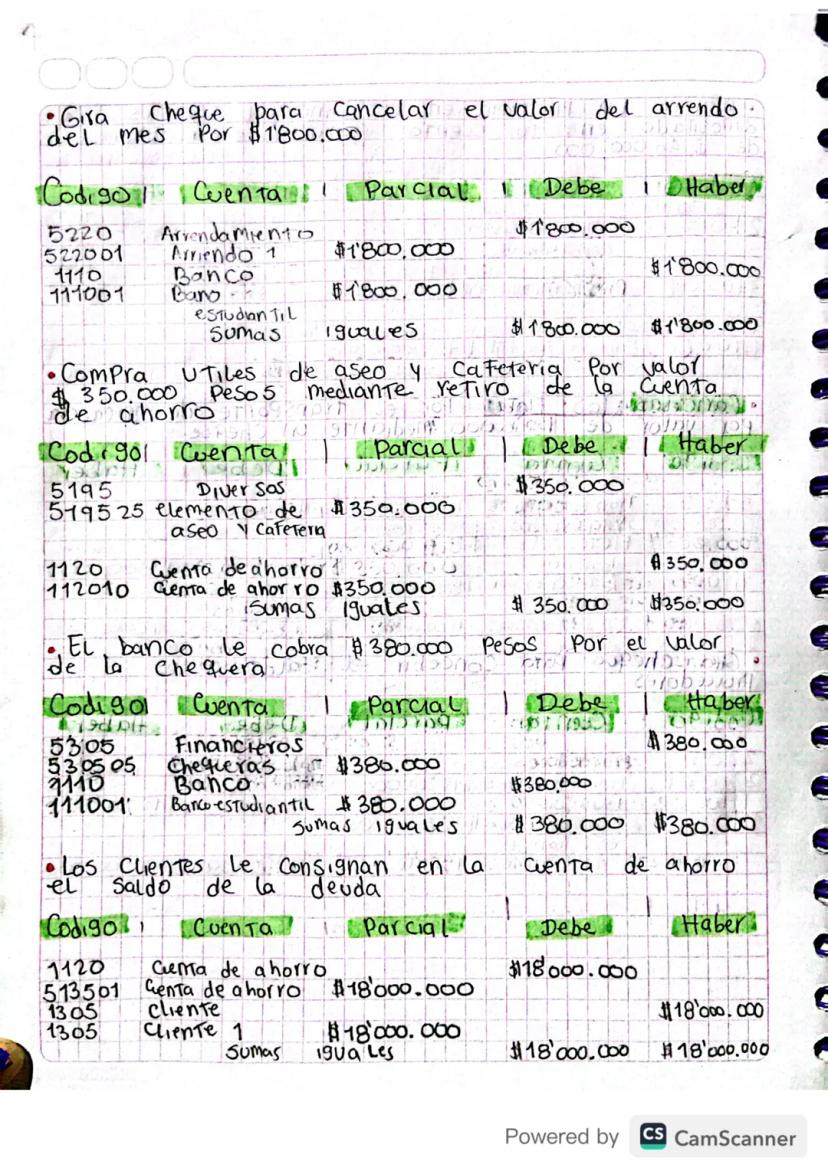 • Gira cheque para cancelar el valor del arrendo
del mes Por $1'800.000
Codigo | Cuenta | Parcial | Debe | Haber
5220 Arrendamiento $1'800.000
522001 Arriendo 1 $1'800.000
1110 Banco $1'800.000
111001 Bano $1'800.000
estudiantil
sumas iguales $1'800.000 $1'800.000
• Compra utiles de aseo y cafeteria Por valor
$ 350.000 Pesos mediante retiro de la cuenta
de ahorro
Codigo | Cuenta | Parcial | Debe | Haber
5195 Diversos $350.000
519525 elemento de $350.000
aseo y cafeteria
1120 Cuenta de ahorro $350.000
112010 Cuenta de ahorro $350.000
sumas iguales $350.000 $350.000
• El banco le cobra $380.000 Pesos Por el valor
de la chequera
Codigo | Cuenta | Parcial | Debe | Haber
5305 Financieros $380.000
530505 Chequeras $380.000
1110 Banco $380.000
111001 Banco estudiantil $380.000
sumas iguales $380.000 $380.000
• Los clientes le consignan en la cuenta de ahorro
el saldo de la deuda
Codigo | Cuenta | Parcial | Debe | Haber
1120 Cuenta de ahorro $18'000.000
513501 Centa de ahorro $18'000.000
1305 cliente $18'000.000
1305 Cliente 1 $18'000.000
sumas iguales $18'000.000 $18'000.000
Powered by CS CamScanner